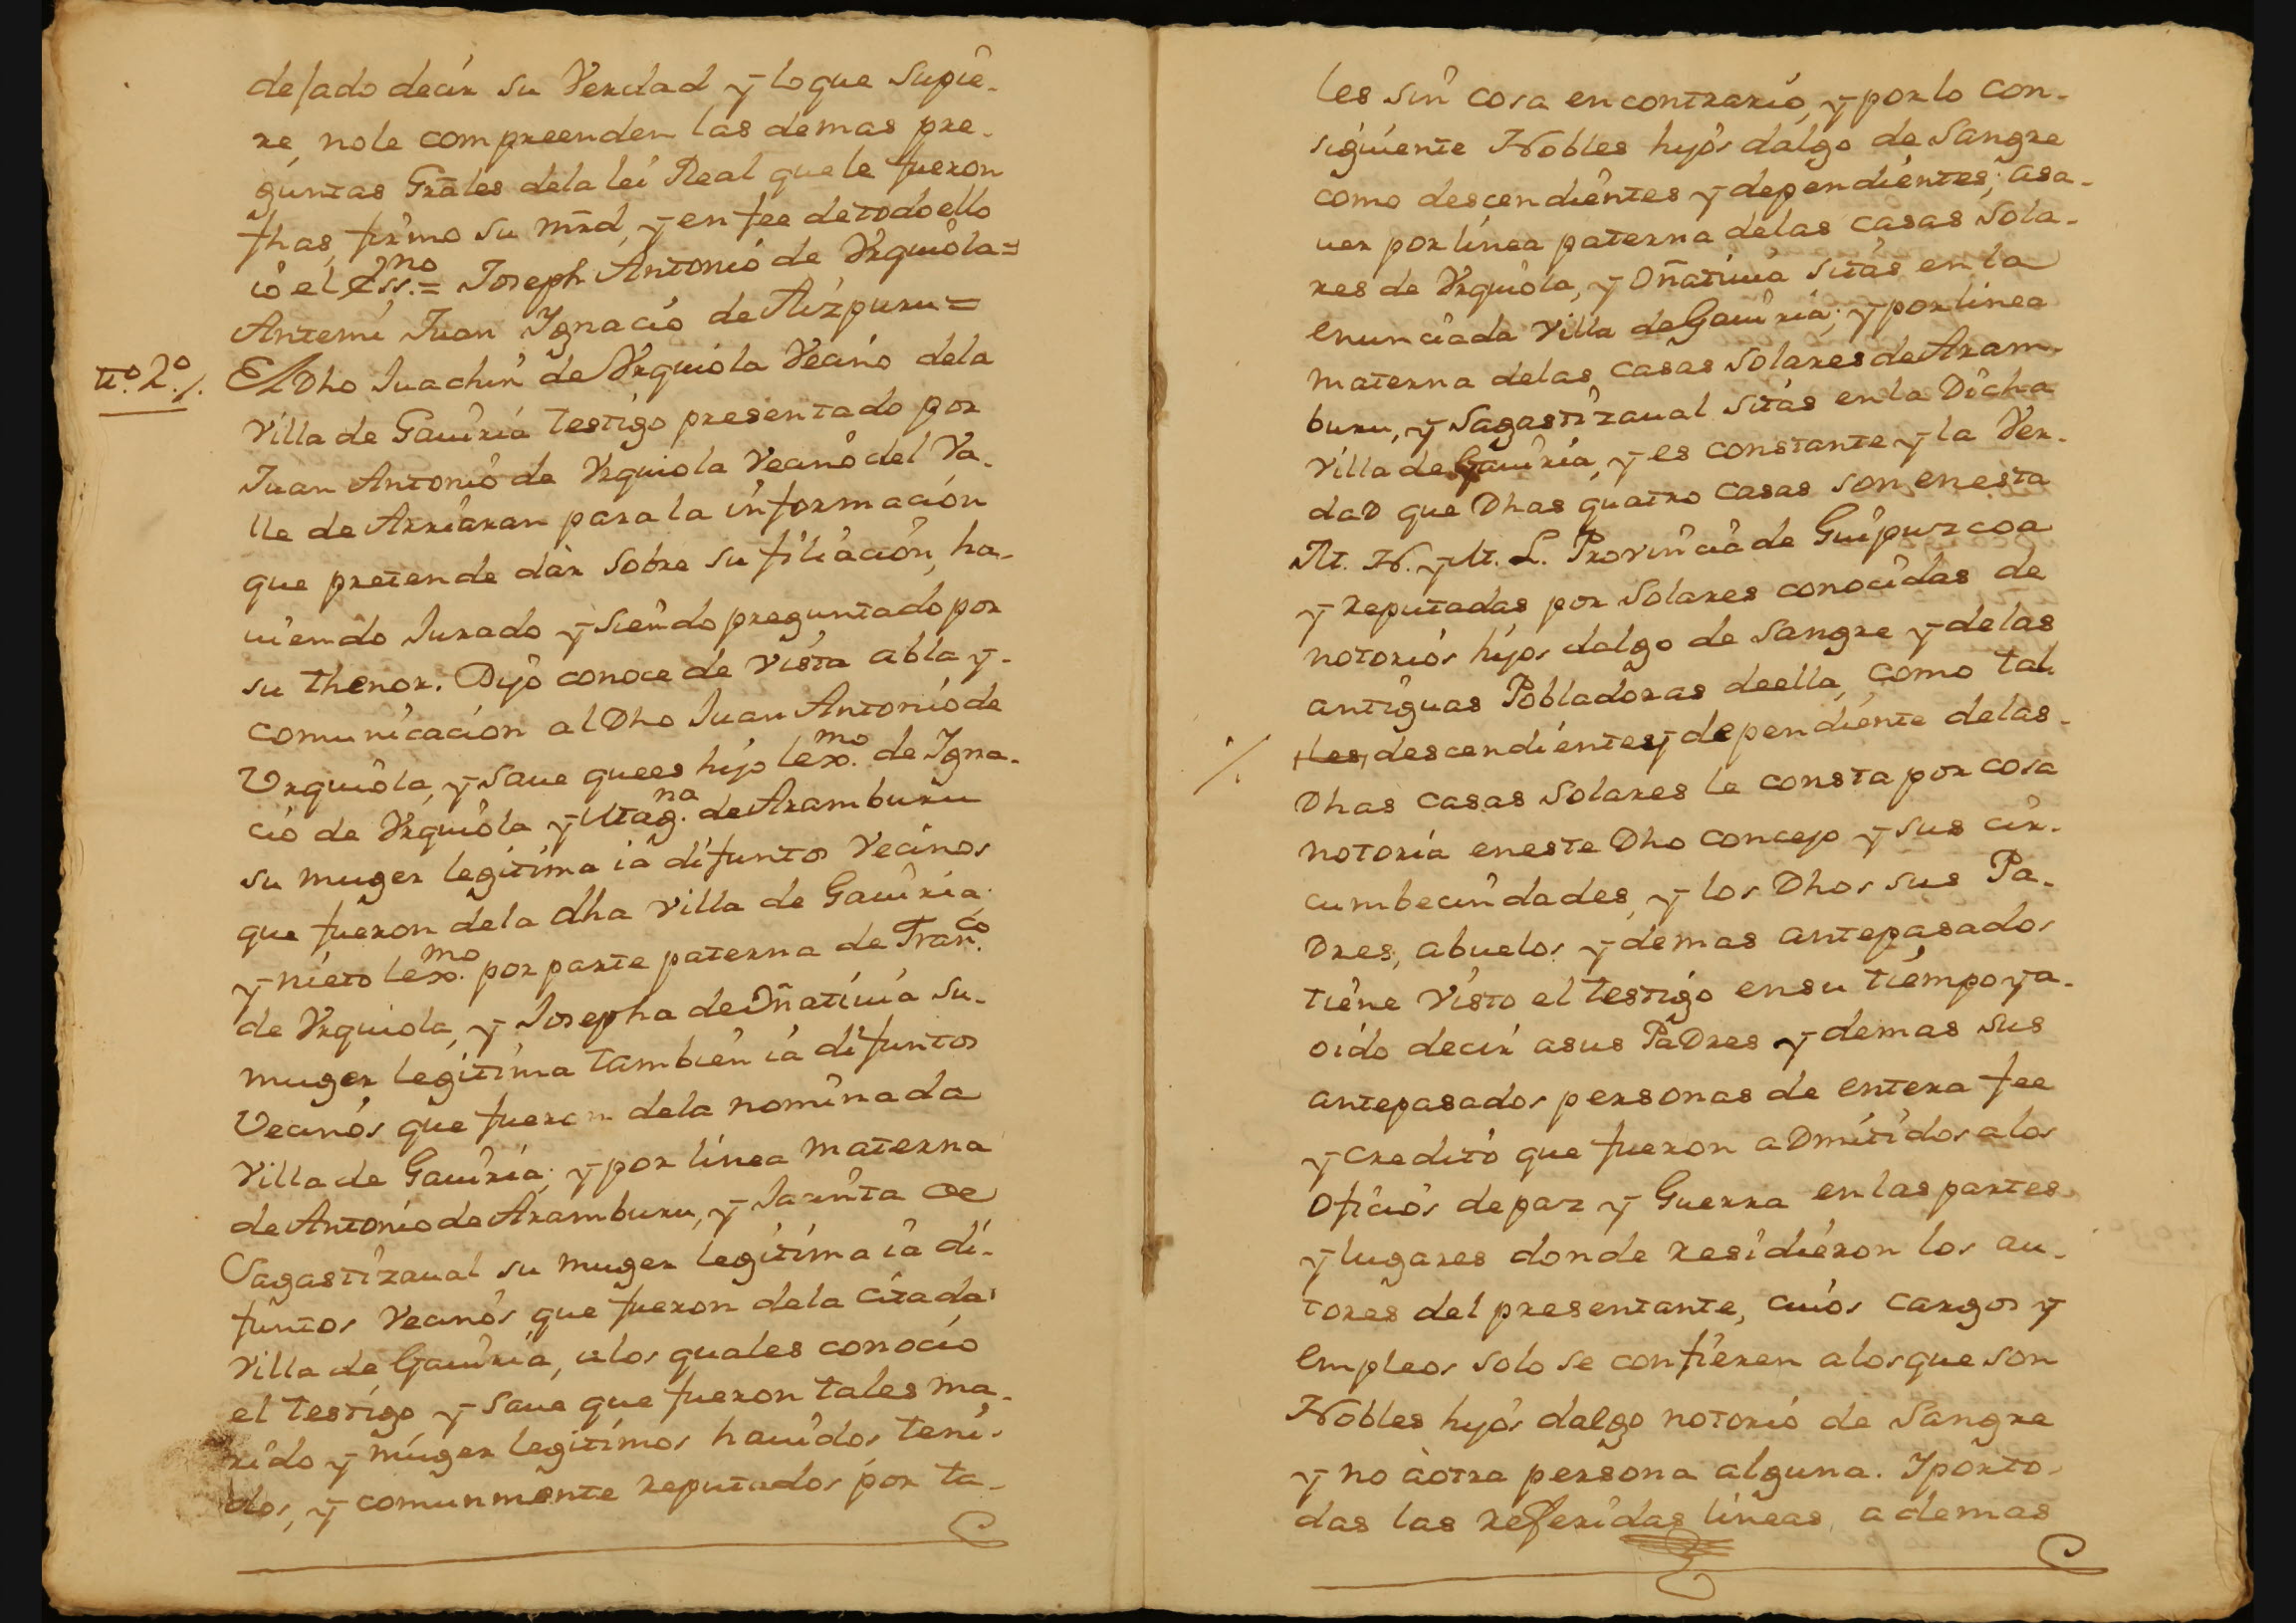 desado decir su Verdad, y loque Supie-
re, nole compreenden las demas pre-
guntas Grãles dela lei Real que le fueron
fhas, firmo su mrd, y en fee detodoello
io el Ess.no = Joseph Antonio de Vrquiola=
Antemi Juan Ygnacio de Aizpuru=
tt.o 2.o/.
El Dho Juachin de Vrquiola Vecino dela
Villa de Gauiria testigo presentado por
Juan Antonio de Vrquiola Vecino del Va-
lle de Arriaran para la informacion
que pretende dàr Sobre su filiacion, ha-
uiendo Jurado y siendo preguntado por
su thenor. Dijo conoce de vista abla y-
comunicacion al Dho Juan Antonio de
Vrquiola, y Saue quees hijo lex.mo de Igna-
cio de Vrquiola y Mag.na de Aramburu
su muger legitima ia difuntos Vecinos
que fueron dela dha villa de Gauiria;
y nieto lex.mo por parte paterna de Fran.co
de Vrquiola, y Josepha de Oñatiuia su-
muger legitima tambien ia difuntos
Vecinos que fueron dela nominada
Villa de Gauiria; y por linea materna
de Antonio de Aramburu, y Jacinta de
Sagastizaual su muger legitima ia di-
funtos Vecinos que fueron dela citada
Villa de Gauiria, alos quales conocio
el testigo, y Saue que fueron tales ma-
rido y muger legitimos hauidos, teni-
dos, y comunmente reputados por ta-
les sin cosa encontrario, y porlo con-
siguiente Nobles hijos dalgo de Sangre
como descendientes y dependientes; asa-
uer por linea paterna delas casas Sola-
res de Vrquiola, y Oñatiuia sitas en la
enunciada Villa de Gauiria; y por linea
materna delas casas Solares de Aram-
buru, y Sagastizaual sitas en la Dicha
Villa de Gauiria, y es constante y la Ver-
dad que Dhas quatro casas son enesta
M. N. y M. L. Provincia de Guipuzcoa
y reputadas por Solares conocidas de
notorios hijos dalgo de Sangre y delas
antiguas Pobladoras deella, como tal
/. tles, descendientes, y dependiente delas-
Dhas casas Solares le consta por cosa
notoria eneste Dho concejo y sus cir-
cumbecindades, y los Dhos sus Pa-
Dres, abuelos y demas antepasados
tiene Visto el testigo ensu tiempo y a-
oido decir asus PaDres y demas sus
antepasados personas de entera fee
y credito que fueron aDmitidos alos
oficios depaz y Guerra en las partes
y lugares donde residieron los au-
tores del presentante, cuios cargos y
empleos solo se confieren alosque son
Nobles hijos dalgo notorio de Sangre
y no àotra persona alguna. Yporto-
das las referidas lineas, ademas